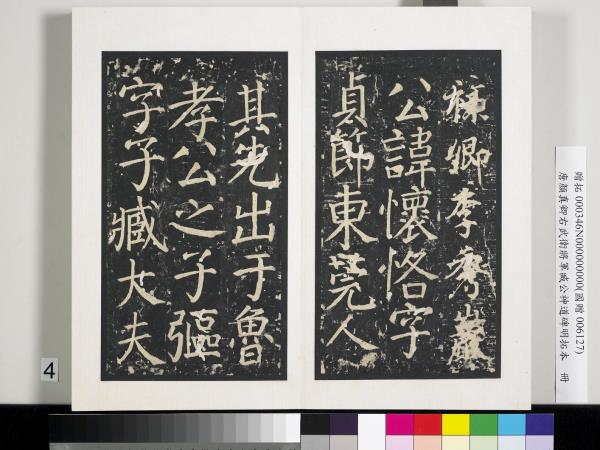 卿李秀巖
公諱懷恪字
貞節東莞人
其先出于魯
孝公之子彄
字子臧大夫
贈拓 000346N000000000(國贈 006127)
唐顏真卿右武衛將軍臧公神道碑明拓本 冊
4